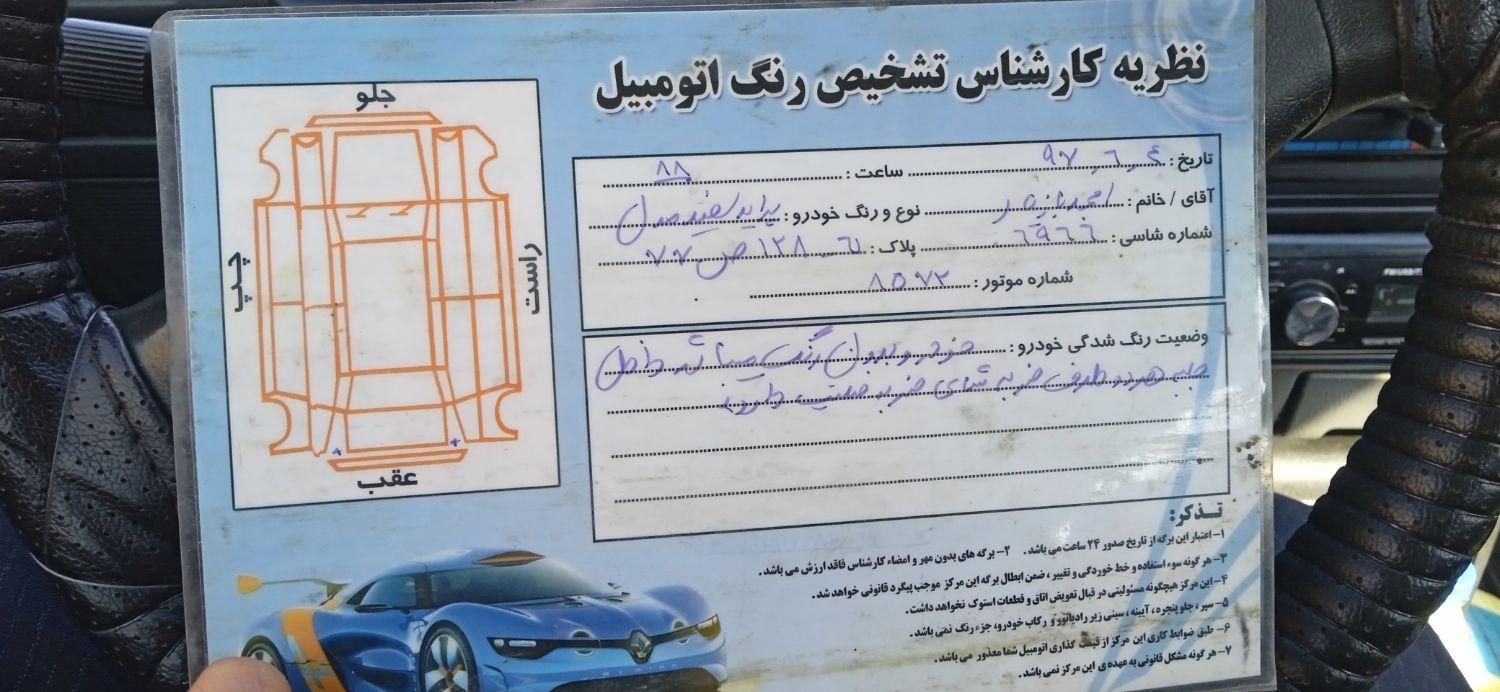 نظریه کارشناس تشخیص رنگ اتومبیل
جلو
چپ
راست
عقب
تاریخ : ۹۷,۶,۴ ساعت : ۸۸
آقای / خانم : نوع و رنگ خودرو : پراید سفید مدل
شماره شاسی : ۶۹۶۶ پلاک : ۶۱ - ۱۲۸ ص ۷۷
شماره موتور : ۸۵۷۲
وضعیت رنگ شدگی خودرو : خودرو بدون رنگ میباشد داخل
هر دو طرف ضربه شدای ضربه دارد
تذکر:
۱- اعتبار این برگه از تاریخ صدور ۲۴ ساعت می باشد. ۲- برگه های بدون مهر و امضاء کارشناس فاقد ارزش می باشد.
۳- هر گونه سوء استفاده و خط خوردگی و تغییر ، ضمن ابطال برگه این مرکز موجب پیگرد قانونی خواهد شد.
۴- این مرکز هیچگونه مسئولیتی در قبال تعویض اتاق و قطعات استوک نخواهد داشت.
۵- سپر ، جلو پنجره ، آیینه ، سینی زیر رادیاتور و رکاب خودرو، جزء رنگ نمی باشد.
۶- طبق ضوابط کاری این مرکز از قیمت گذاری اتومبیل شما معذور می باشد.
۷- هر گونه مشکل قانونی به عهده ی این مرکز نمی باشد.